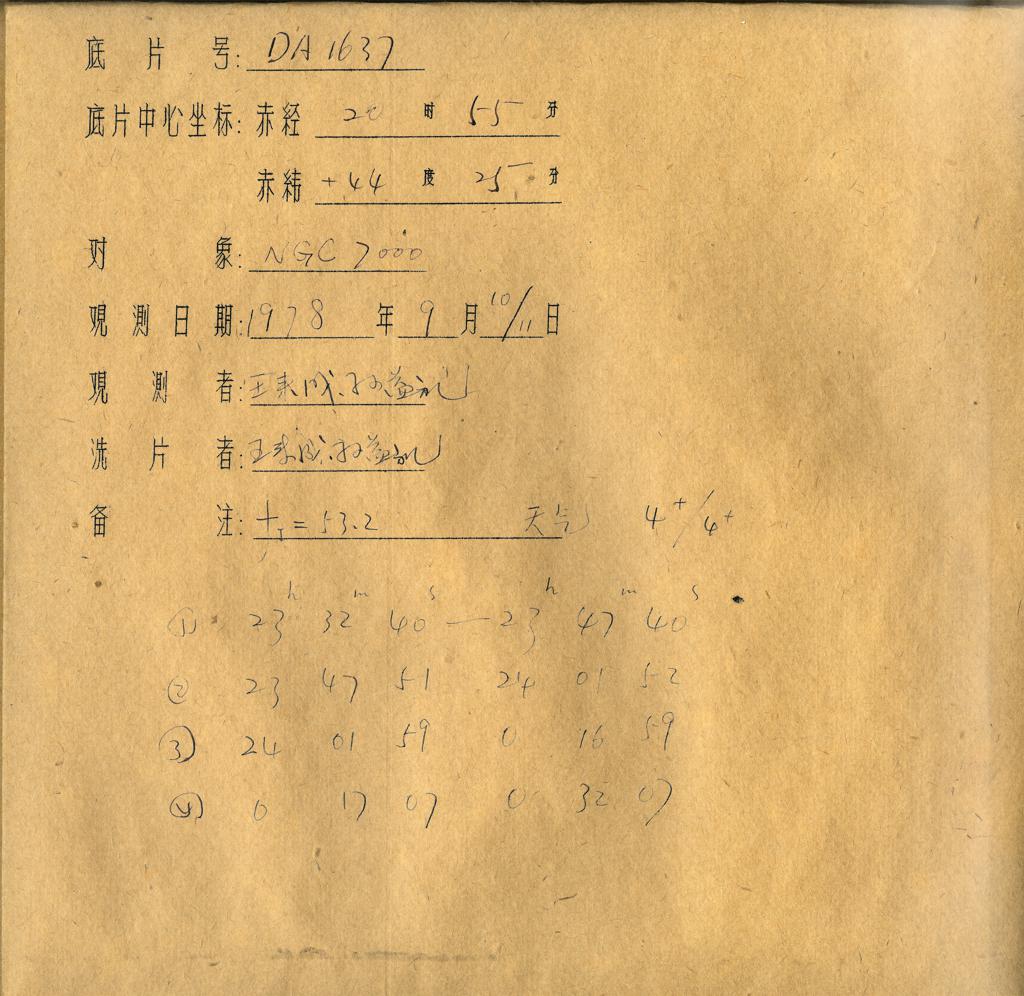 底片号: DA1637
底片中心坐标: 赤经 20 时 55 分
赤纬 +44 度 25 分
对象: NGC 7000
观测日期: 1978 年 9 月 10/11 日
观测者: 王来成、孙益礼
洗片者: 王来成、孙益礼
备注: t_I = 53.2 天气 4+/4+
① 23h 32m 40s — 23h 47m 40s
② 23 47 51 24 01 52
③ 24 01 59 0 16 59
④ 0 17 07 0 32 07